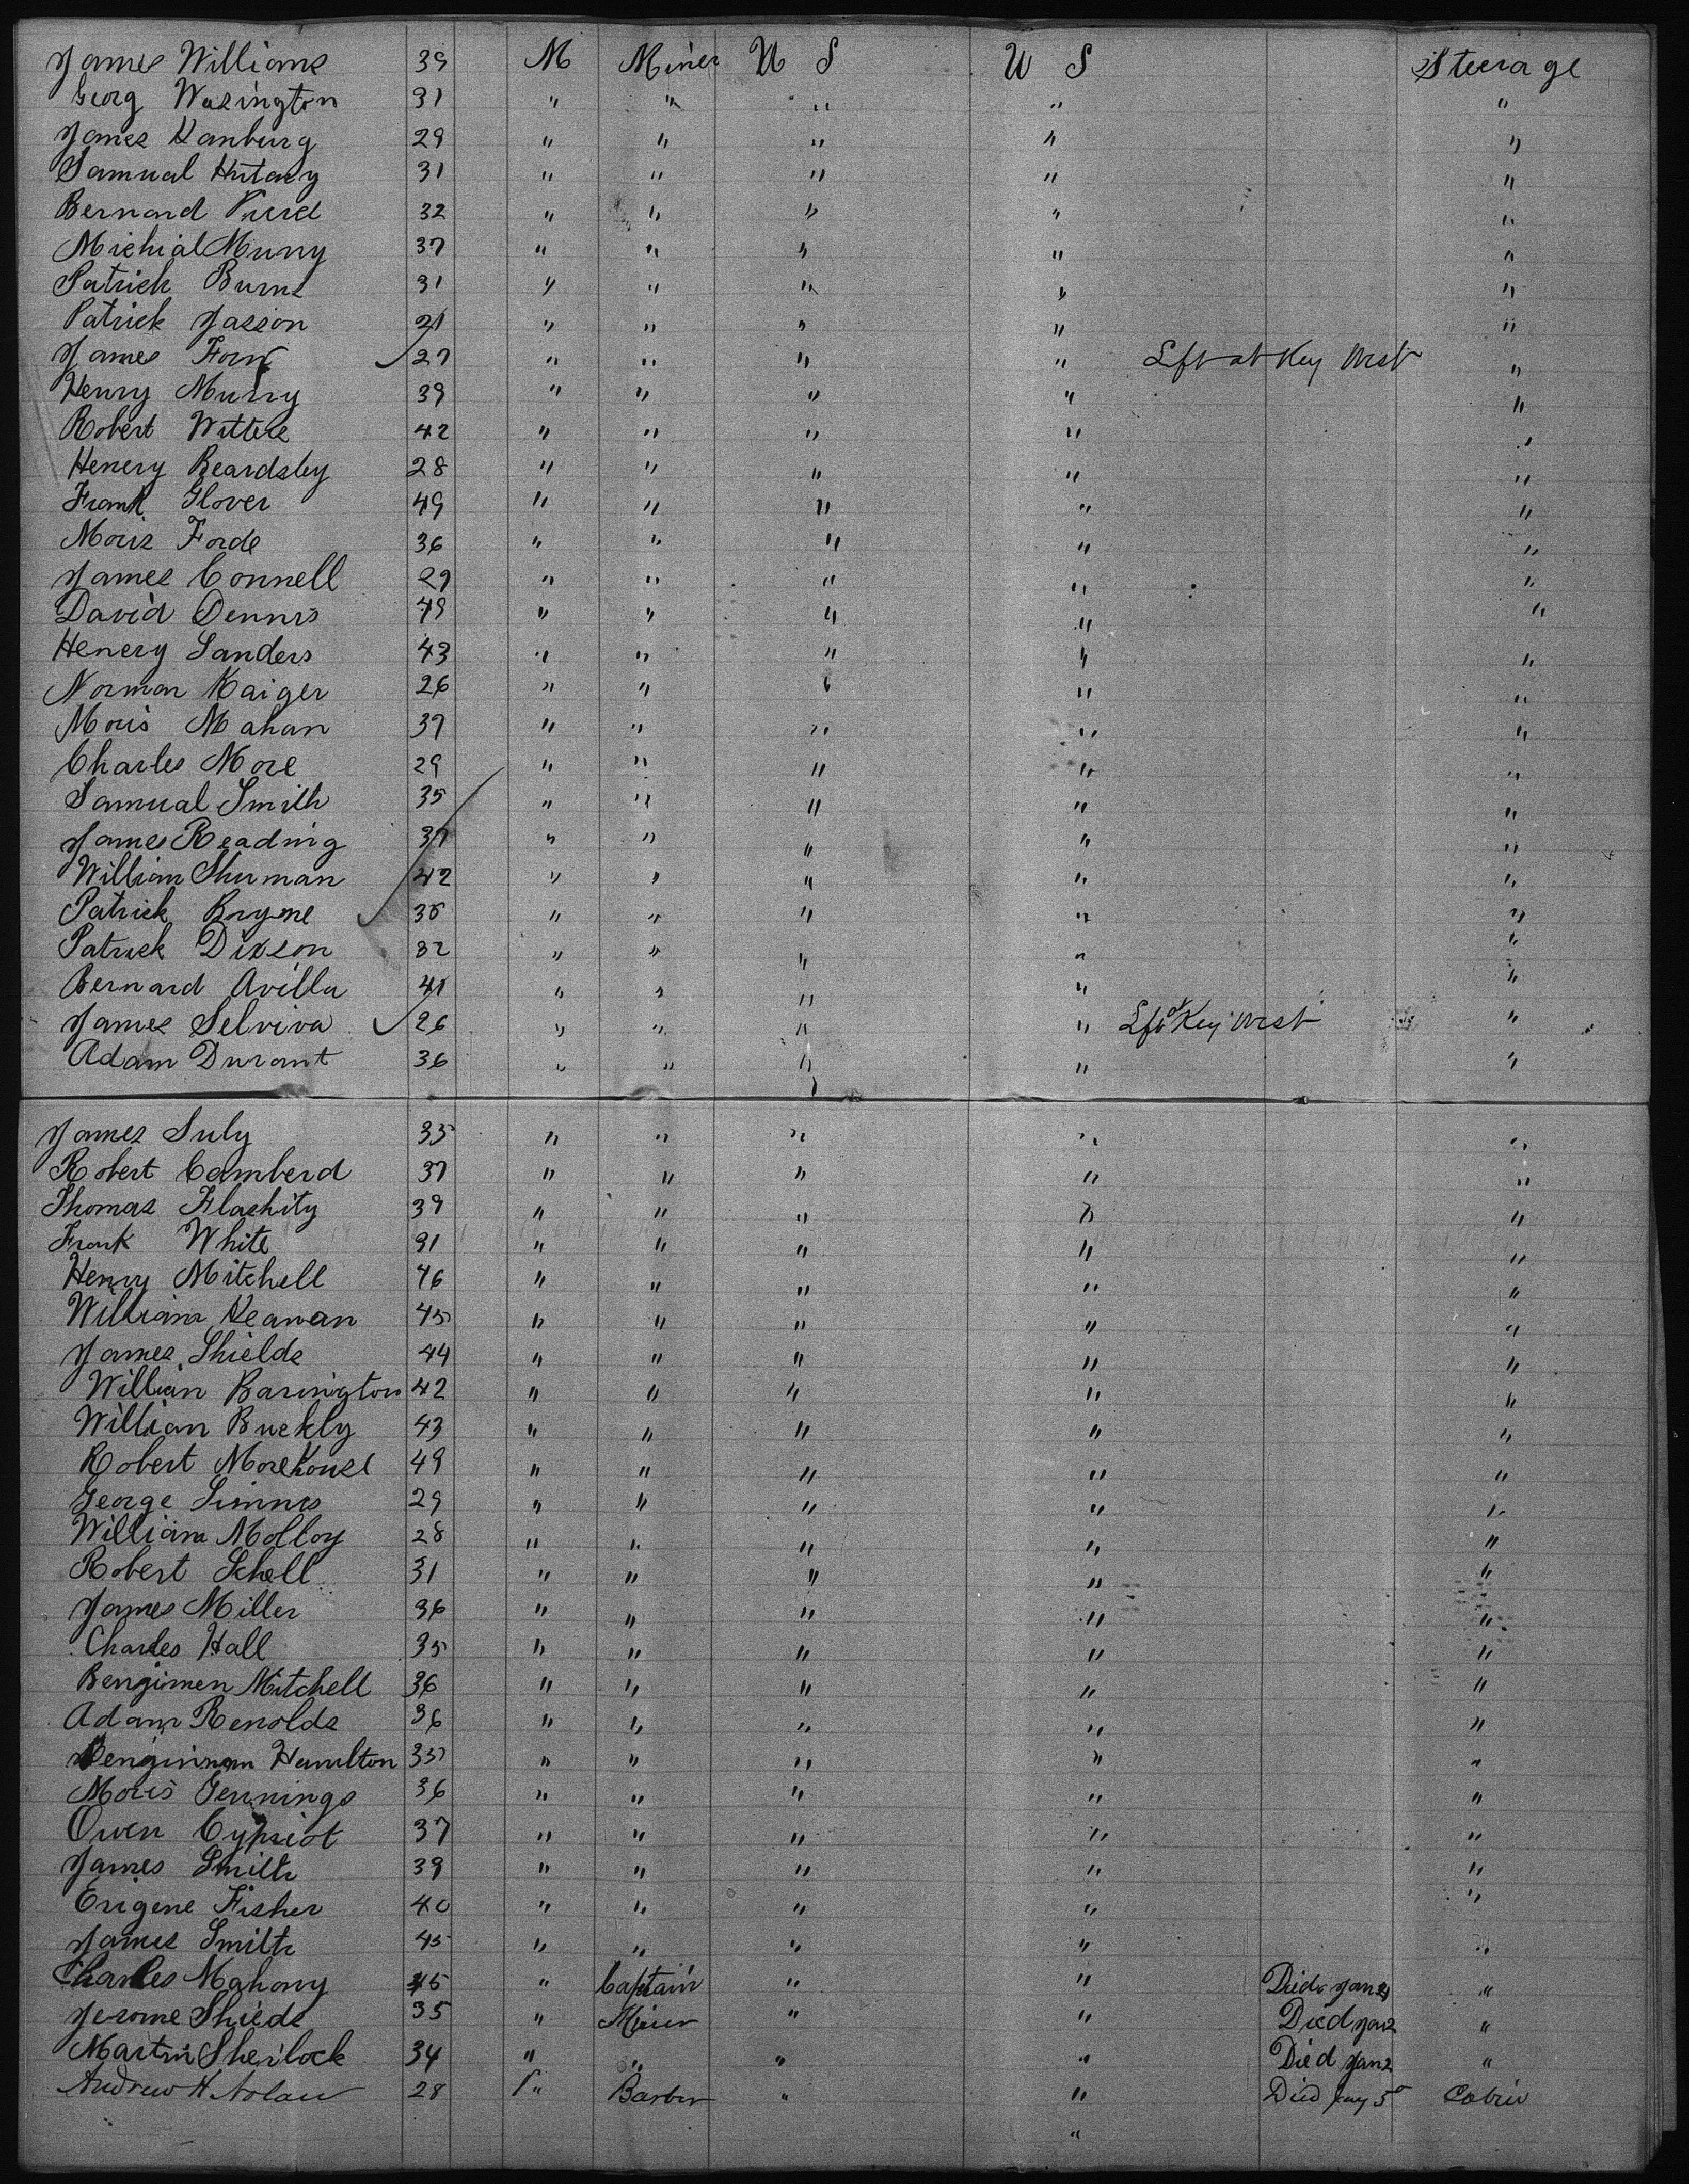 James Williams 39 M Miner U S U S Steerage
Georg Wasington 31 " " " " "
James Hanburg 29 " " " " "
Samual Hutany 31 " " " " "
Bernard 32 " " " " "
Michial Murry 37 " " " " "
Patrick Burns 31 " " " " "
Patrick Jasson 21 " " " " "
James 27 " " " " Left at Key West "
Henry Murry 39 " " " " "
Robert Witters 42 " " " " "
Henery Beardsley 28 " " " " "
Frank Glover 49 " " " " "
Moris Forde 36 " " " " "
James Connell 29 " " " " "
David Dennis 49 " " " " "
Henery Sanders 43 " " " " "
Norman Kaiger 26 " " " " "
Moris Mahan 37 " " " " "
Charles More 29 " " " " "
Samual Smith 35 " " " " "
James Reading 37 " " " " "
William Shurman 42 " " " " "
Patrick Bryne 35 " " " " "
Patrick Dixson 32 " " " " "
Bernard Avilla 41 " " " " "
James Selviva 26 " " " " Left at Key West "
Adam Durant 36 " " " " "
James Suly 35 " " " " "
Robert Camberd 37 " " " " "
Thomas Flashity 39 " " " " "
Frank White 31 " " " " "
Henry Mitchell 46 " " " " "
William Keanan 45 " " " " "
James Shields 44 " " " " "
William Barington 42 " " " " "
William Buckly 43 " " " " "
Robert Morehouse 49 " " " " "
George Simms 29 " " " " "
William Molloy 28 " " " " "
Robert Schell 31 " " " " "
James Miller 36 " " " " "
Charles Hall 35 " " " " "
Bengimen Mitchell 36 " " " " "
Adam Renolds 36 " " " " "
Benginman Hamilton 35 " " " " "
Moris Jennings 36 " " " " "
Owen Cypriot 37 " " " " "
James Smith 39 " " " " "
Eugene Fisher 40 " " " " "
James Smith 45 " " " " "
Charles Mahony 45 " Captain " " Died Jan "
Jerome Shieds 35 " Miner " " Died Jan 2 "
Martin Sherlock 34 " " " " Died Jan 2 "
Andrew H Nolan 28 " Barber " " Died Jany 5 Cabin
"